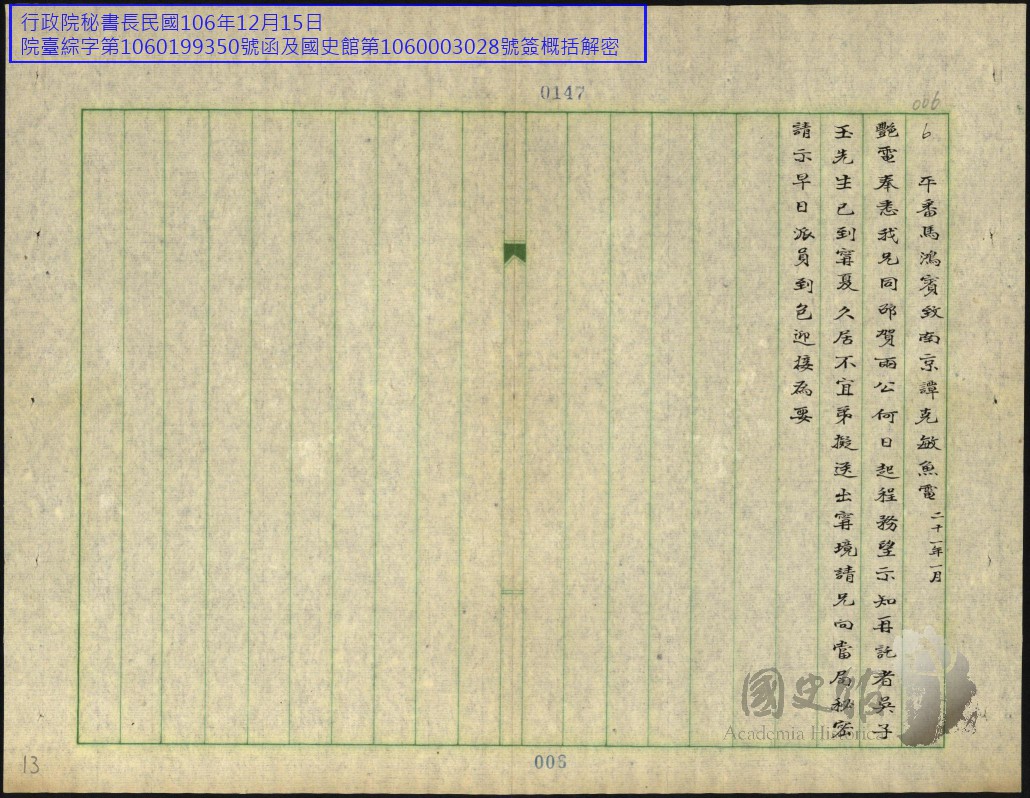 行政院秘書長民國106年12月15日
院臺綜字第1060199350號函及國史館第1060003028號簽概括解密
0147
006
6 平番馬鴻賓致南京譚克敏魚電 二十一年一月
艷電奉悉我兄同邵賀雨公何日起程務望示知再託者吳子
玉先生已到寗夏久居不宜弟擬送出寗境請兄向當局秘密
請示早日派員到包迎接為要
國史館
Academia Historica
13
006